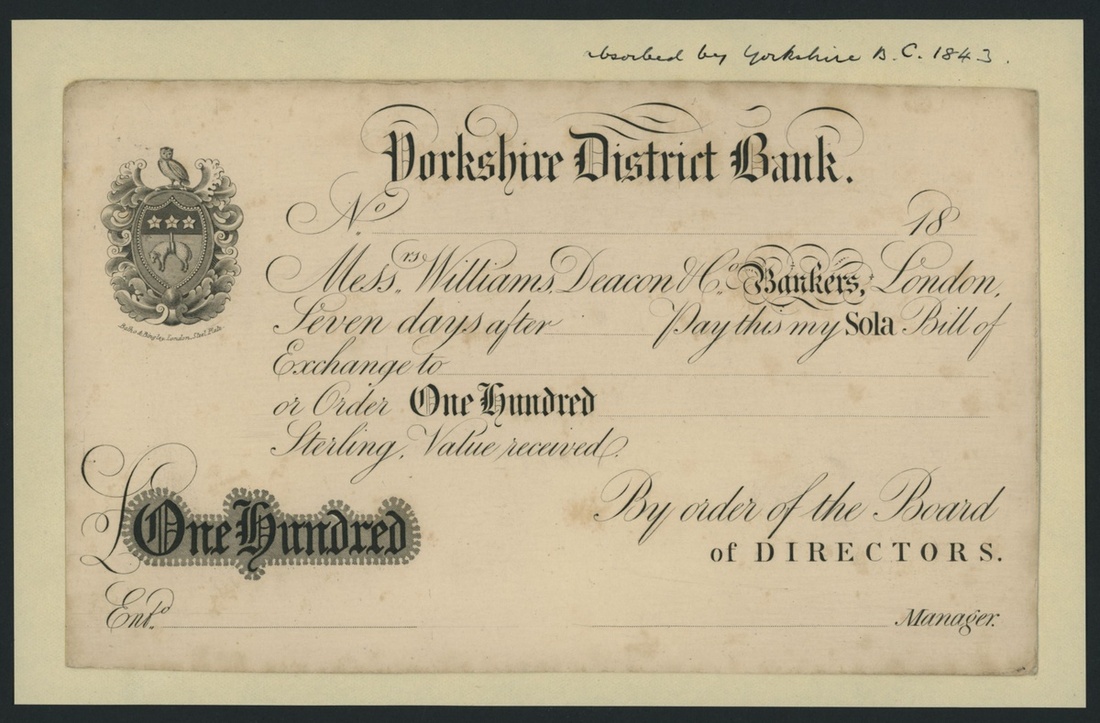 absorbed by Yorkshire B.C. 1843.
Yorkshire District Bank.
No. 18
Messrs. Williams, Deacon & Co. Bankers, London,
Seven days after Pay this my Sola Bill of
Exchange to
or Order One Hundred
Sterling, Value received.
£ One Hundred
By order of the Board
of DIRECTORS.
Entd.
Manager.